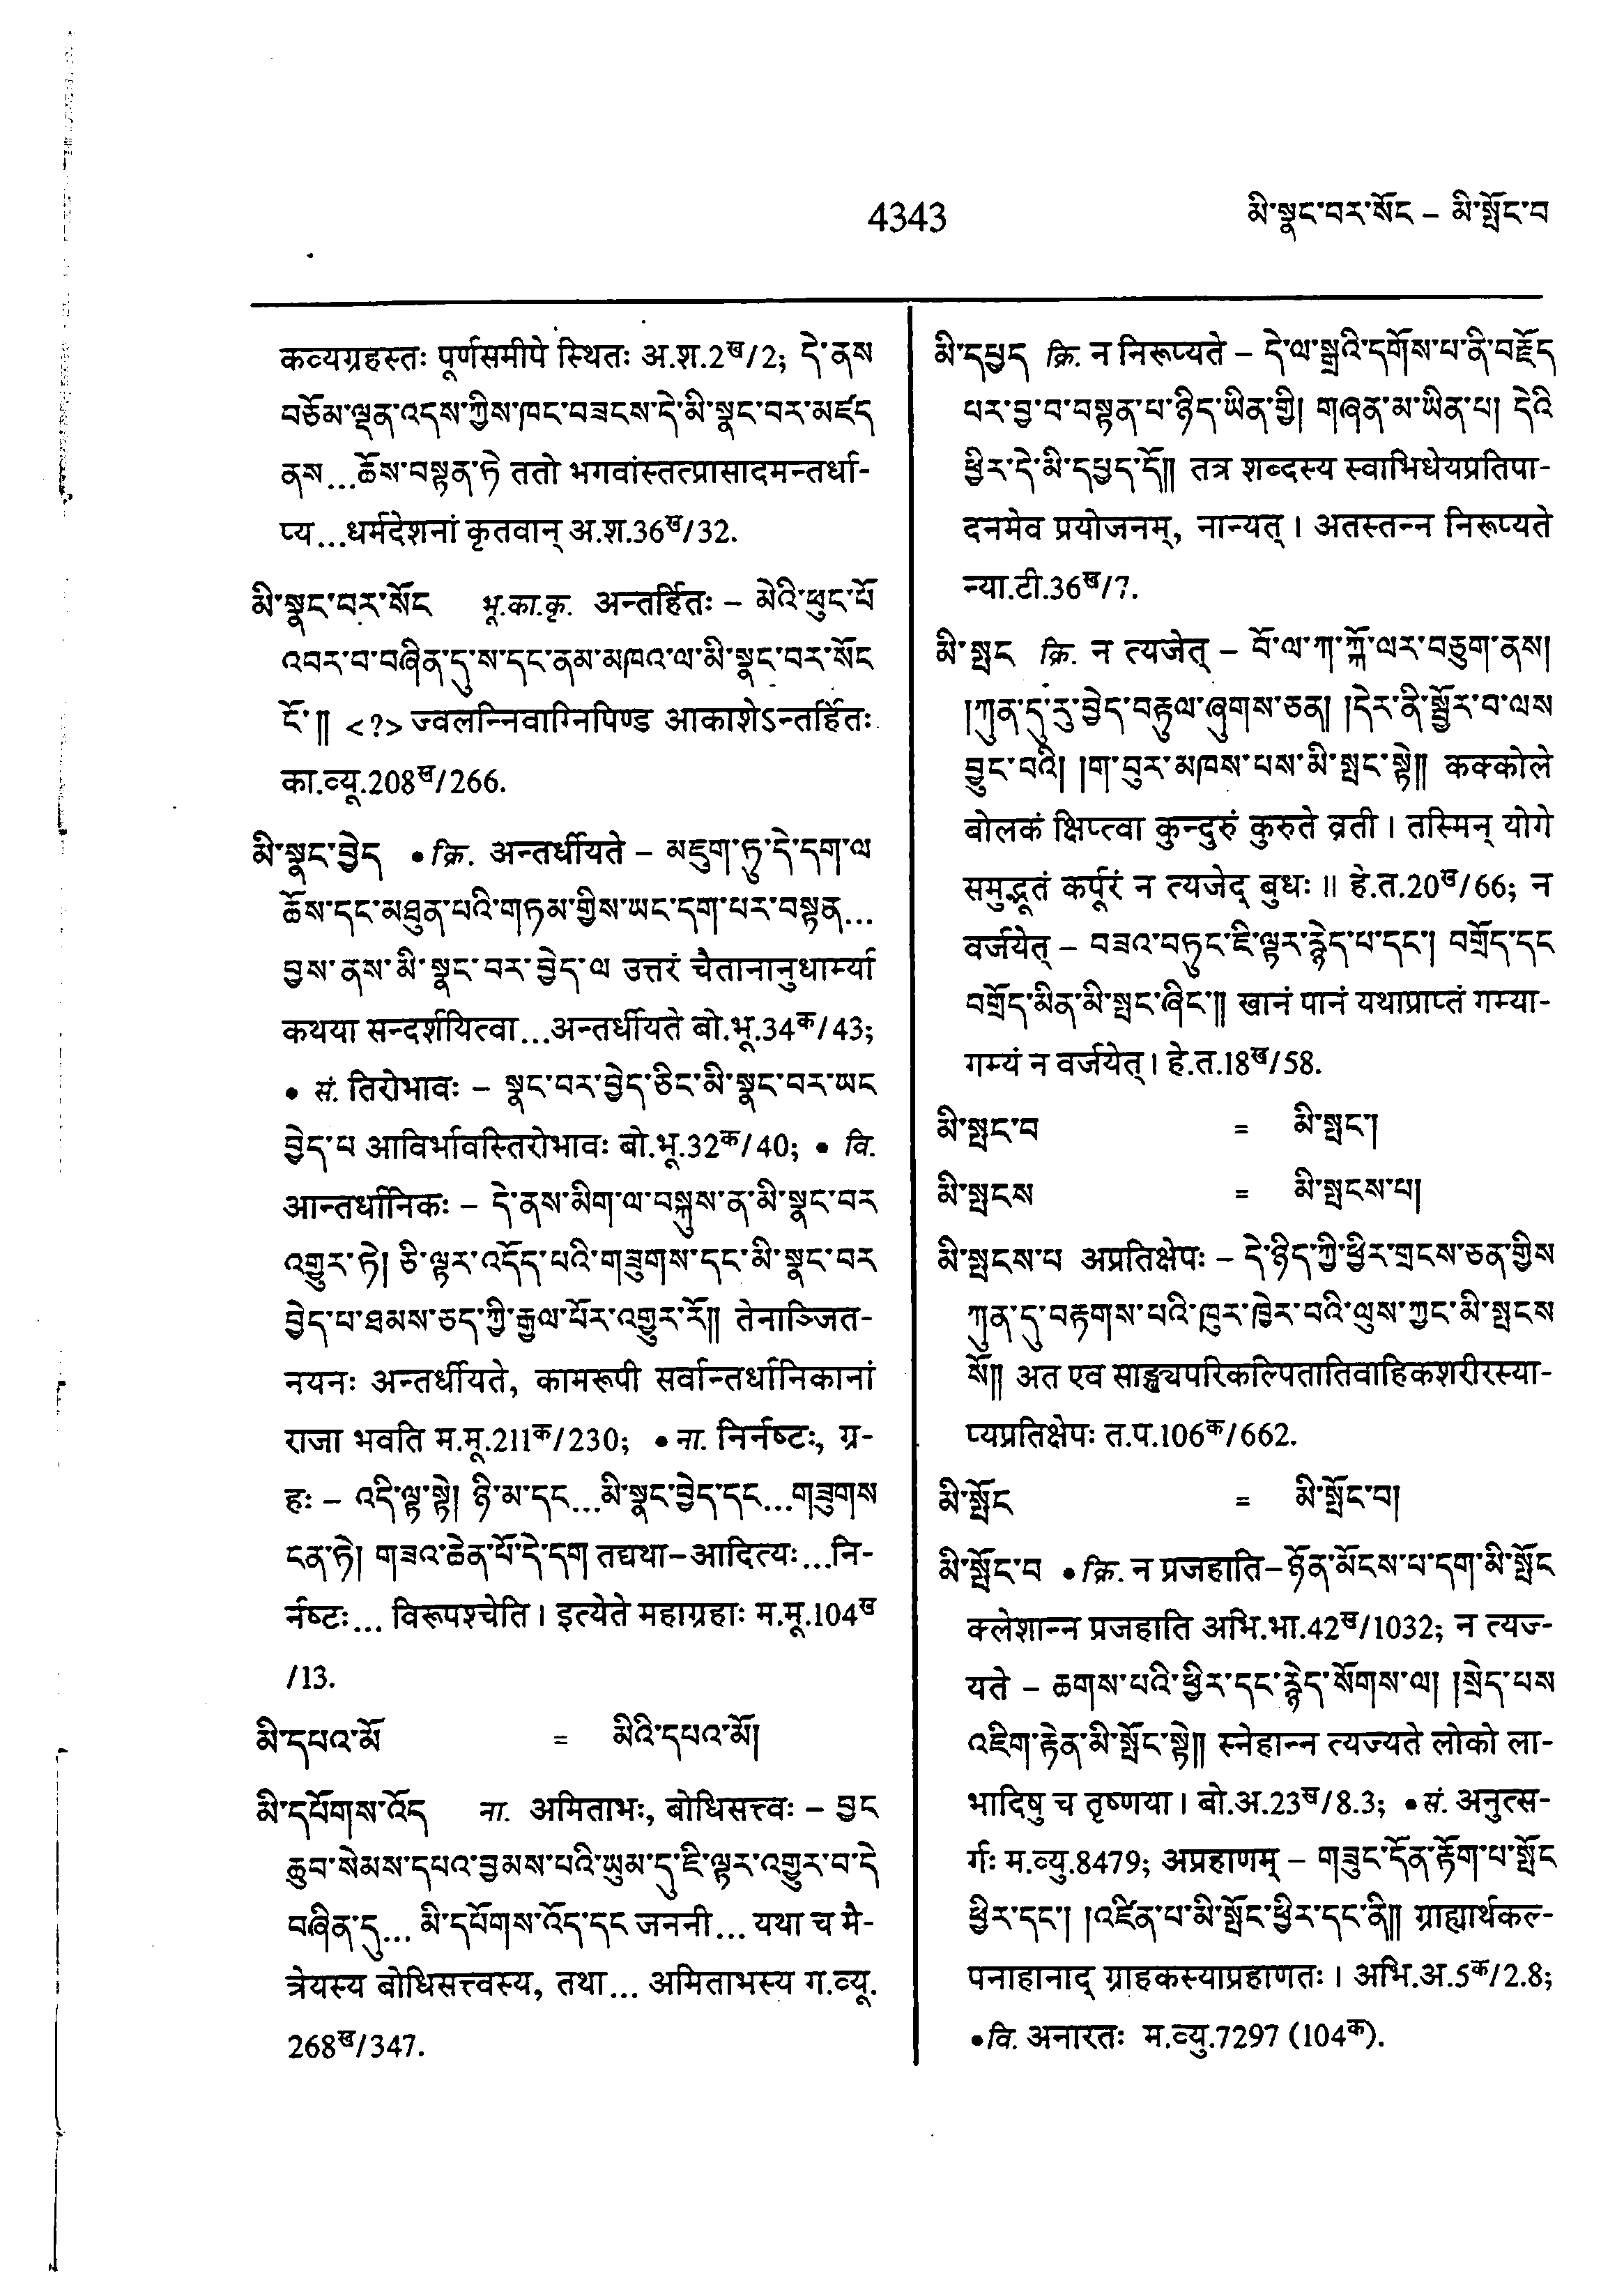 4343
མི་སྣང་བར་སོང – མི་སྤོང་བ
कव्यग्रहस्तः पूर्णसमीपे स्थितः अ.श.2ख/2; དེ་ནས
བཅོམ་ལྡན་འདས་ཀྱིས་ཁང་བཟངས་དེ་མི་སྣང་བར་མཛད
ནས...ཆོས་བསྟན་ཏེ ततो भगवांस्तत्प्रासादमन्तर्धा-
प्य...धर्मदेशनां कृतवान् अ.श.36ख/32.
མི་སྣང་བར་སོང भू.का.कृ. अन्तर्हितः – མེའི་ཕུང་པོ
འབར་བ་བཞིན་དུ་ས་དང་ནམ་མཁའ་ལ་མི་སྣང་བར་སོང
ངོ་༎ <?> ज्वलन्निवाग्निपिण्ड आकाशेऽन्तर्हितः
का.व्यू.208ख/266.
མི་སྣང་བྱེད • क्रि. अन्तर्धीयते – མཇུག་ཏུ་དེ་དག་ལ
ཆོས་དང་མཐུན་པའི་གཏམ་གྱིས་ཡང་དག་པར་བསྟན...
བྱས་ནས་མི་སྣང་བར་བྱེད་ལ उत्तरं चैतानानुधार्म्या
कथया सन्दर्शयित्वा...अन्तर्धीयते बो.भू.34क/43;
• सं. तिरोभावः – སྣང་བར་བྱེད་ཅིང་མི་སྣང་བར་ཡང
བྱེད་པ आविर्भावस्तिरोभावः बो.भू.32क/40; • वि.
आन्तर्धानिकः – དེ་ནས་མིག་ལ་བསྐུས་ན་མི་སྣང་བར
འགྱུར་ཏེ། ཅི་ལྟར་འདོད་པའི་གཟུགས་དང་མི་སྣང་བར
བྱེད་པ་ཐམས་ཅད་ཀྱི་རྒྱལ་པོར་འགྱུར་རོ༎ तेनाञ्जित-
नयनः अन्तर्धीयते, कामरूपी सर्वान्तर्धानिकानां
राजा भवति म.मू.211क/230; • ना. निर्नष्टः, ग्र-
हः – འདི་ལྟ་སྟེ། ཉི་མ་དང...མི་སྣང་བྱེད་དང...གཟུགས
ངན་ཏེ། གཟའ་ཆེན་པོ་དེ་དག तद्यथा–आदित्यः...नि-
र्नष्टः... विरूपश्चेति । इत्येते महाग्रहाः म.मू.104ख
/13.
མི་དཔའ་མོ = མིའི་དཔའ་མོ།
མི་དཔོགས་འོད ना. अमिताभः, बोधिसत्त्वः – བྱང
ཆུབ་སེམས་དཔའ་བྱམས་པའི་ཡུམ་དུ་ཇི་ལྟར་འགྱུར་བ་དེ
བཞིན་དུ... མི་དཔོགས་འོད་དང जननी... यथा च मै-
त्रेयस्य बोधिसत्त्वस्य, तथा... अमिताभस्य ग.व्यू.
268ख/347.
མི་དཔྱད क्रि. न निरूप्यते – དེ་ལ་སྒྲའི་དགོས་པ་ནི་བརྗོད
པར་བྱ་བ་བསྟན་པ་ཉིད་ཡིན་གྱི། གཞན་མ་ཡིན་པ། དེའི
ཕྱིར་དེ་མི་དཔྱད་དོ༎ तत्र शब्दस्य स्वाभिधेयप्रतिपा-
दनमेव प्रयोजनम्, नान्यत् । अतस्तन्न निरूप्यते
न्या.टी.36ख/7.
མི་སྤང क्रि. न त्यजेत् – བོ་ལ་ཀ་ཀྐོ་ལར་བཅུག་ནས།
།ཀུན་དུ་རུ་བྱེད་བརྟུལ་ཞུགས་ཅན། །དེར་ནི་སྦྱོར་བ་ལས
བྱུང་བའི། །ག་བུར་མཁས་པས་མི་སྤང་སྟེ༎ कक्कोले
बोलकं क्षिप्त्वा कुन्दुरुं कुरुते व्रती । तस्मिन् योगे
समुद्भूतं कर्पूरं न त्यजेद् बुधः ॥ हे.त.20ख/66; न
वर्जयेत् – བཟའ་བཏུང་ཇི་ལྟར་རྙེད་པ་དང་། བགྲོད་དང
བགྲོད་མིན་མི་སྤང་ཞིང་༎ खानं पानं यथाप्राप्तं गम्या-
गम्यं न वर्जयेत् । हे.त.18ख/58.
མི་སྤང་བ = མི་སྤང་།
མི་སྤངས = མི་སྤངས་པ།
མི་སྤངས་པ अप्रतिक्षेपः – དེ་ཉིད་ཀྱི་ཕྱིར་གྲངས་ཅན་གྱིས
ཀུན་དུ་བརྟགས་པའི་ཁུར་ཁྱེར་བའི་ལུས་ཀྱང་མི་སྤངས
སོ༎ अत एव साङ्ख्यपरिकल्पितातिवाहिकशरीरस्या-
प्यप्रतिक्षेपः त.प.106क/662.
མི་སྤོང = མི་སྤོང་བ།
མི་སྤོང་བ • क्रि. न प्रजहाति–ཉོན་མོངས་པ་དག་མི་སྤོང
क्लेशान्न प्रजहाति अभि.भा.42ख/1032; न त्यज्-
यते – ཆགས་པའི་ཕྱིར་དང་རྙེད་སོགས་ལ། །སྲེད་པས
འཇིག་རྟེན་མི་སྤོང་སྟེ༎ स्नेहान्न त्यज्यते लोको ला-
भादिषु च तृष्णया । बो.अ.23ख/8.3; • सं. अनुत्स-
र्गः म.व्यु.8479; अप्रहाणम् – གཟུང་དོན་རྟོག་པ་སྤོང
ཕྱིར་དང་། །འཛིན་པ་མི་སྤོང་ཕྱིར་དང་ནི༎ ग्राह्यार्थकल्-
पनाहानाद् ग्राहकस्याप्रहाणतः । अभि.अ.5क/2.8;
• वि. अनारतः म.व्यु.7297 (104क).